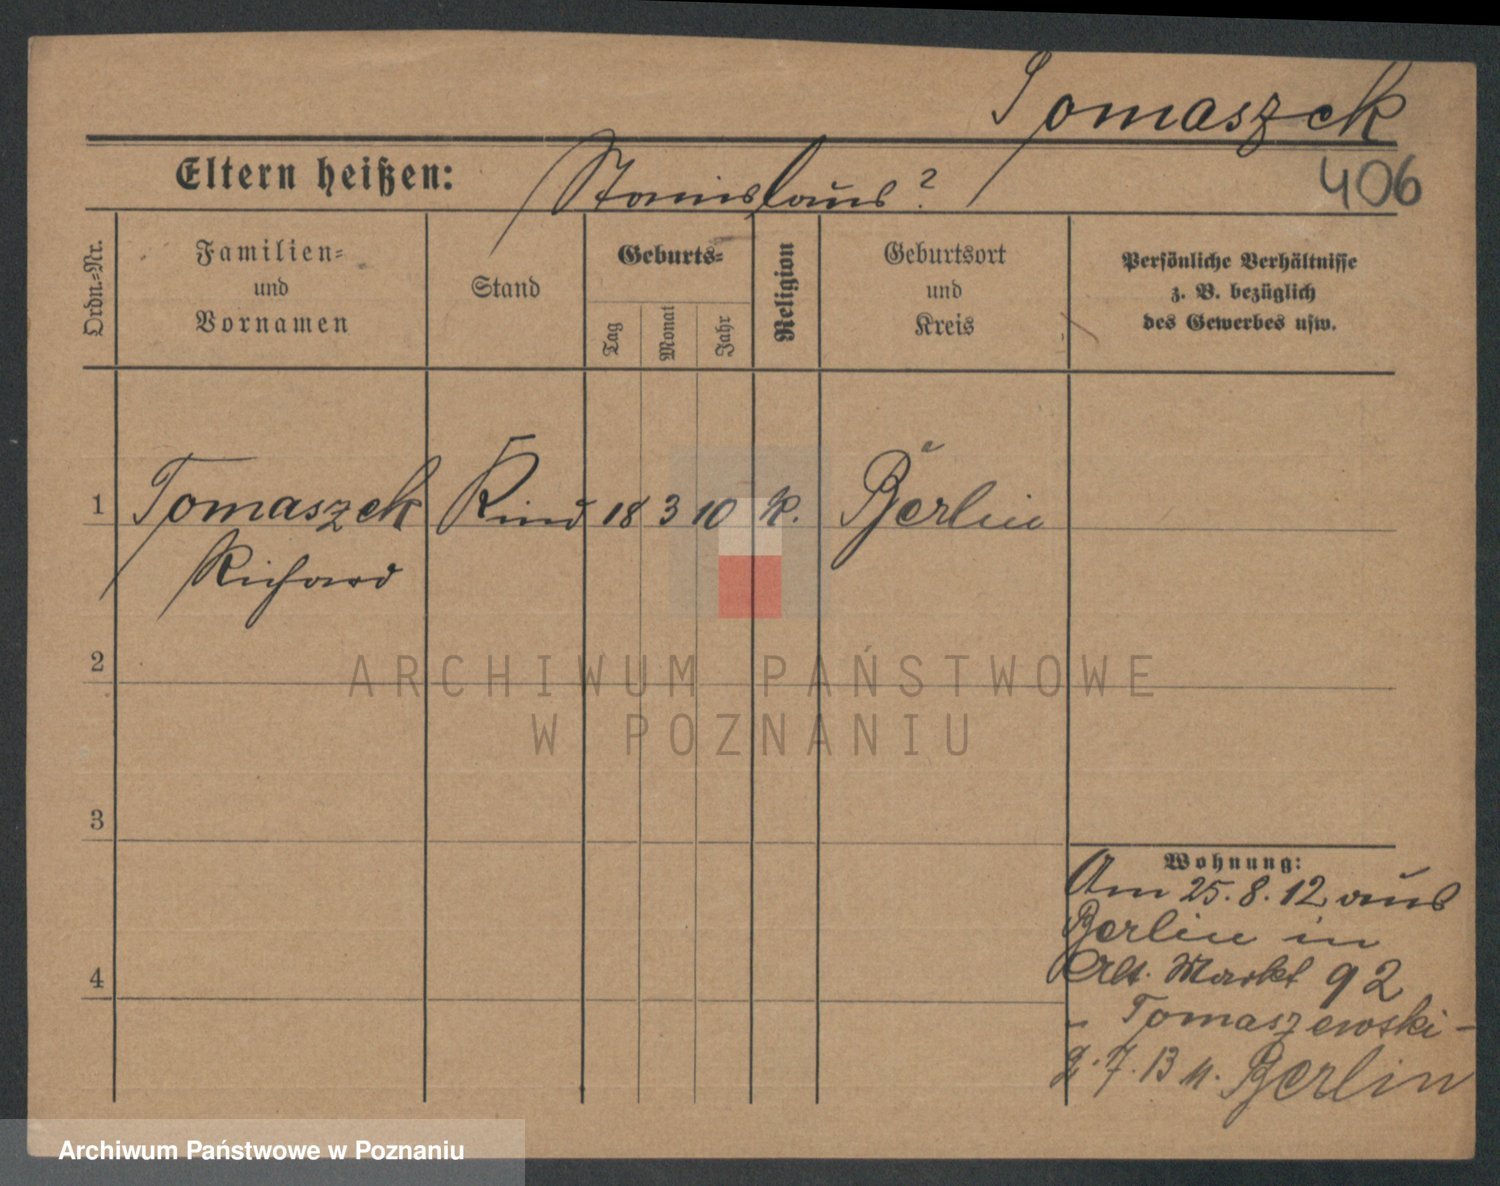 Tomaszek
Eltern heißen: Stanislaus?
406
Ordn.-Nr.
Familien-
und
Vornamen
Stand
Geburts-
Tag
Monat
Jahr
Religion
Geburtsort
und
Kreis
Persönliche Verhältnisse
z. B. bezüglich
des Gewerbes usw.
1 Tomaszek Kind 18 3 10 k. Berlin
Richard
2
ARCHIWUM PAŃSTWOWE
W POZNANIU
3
Wohnung:
Am 25.8.12 aus
Berlin in
Alt. Markt 92
- Tomaszewski -
4
2.7.13 n. Berlin
Archiwum Państwowe w Poznaniu